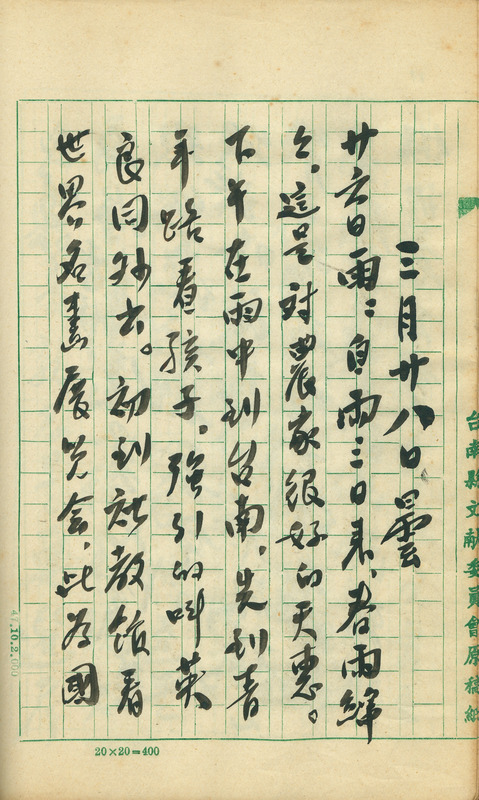 台南縣文献委員會原稿紙
三月廿八日 曇
廿六日雨:自雨三日來、春雨綿
々。這是對農家很好的天惠。
下午在雨中到台南、先到青
年路看孩子。強引的叫英
良同外出。初到社教館看
世界名畫展覽会、此為國
47.10.2,000
20×20=400